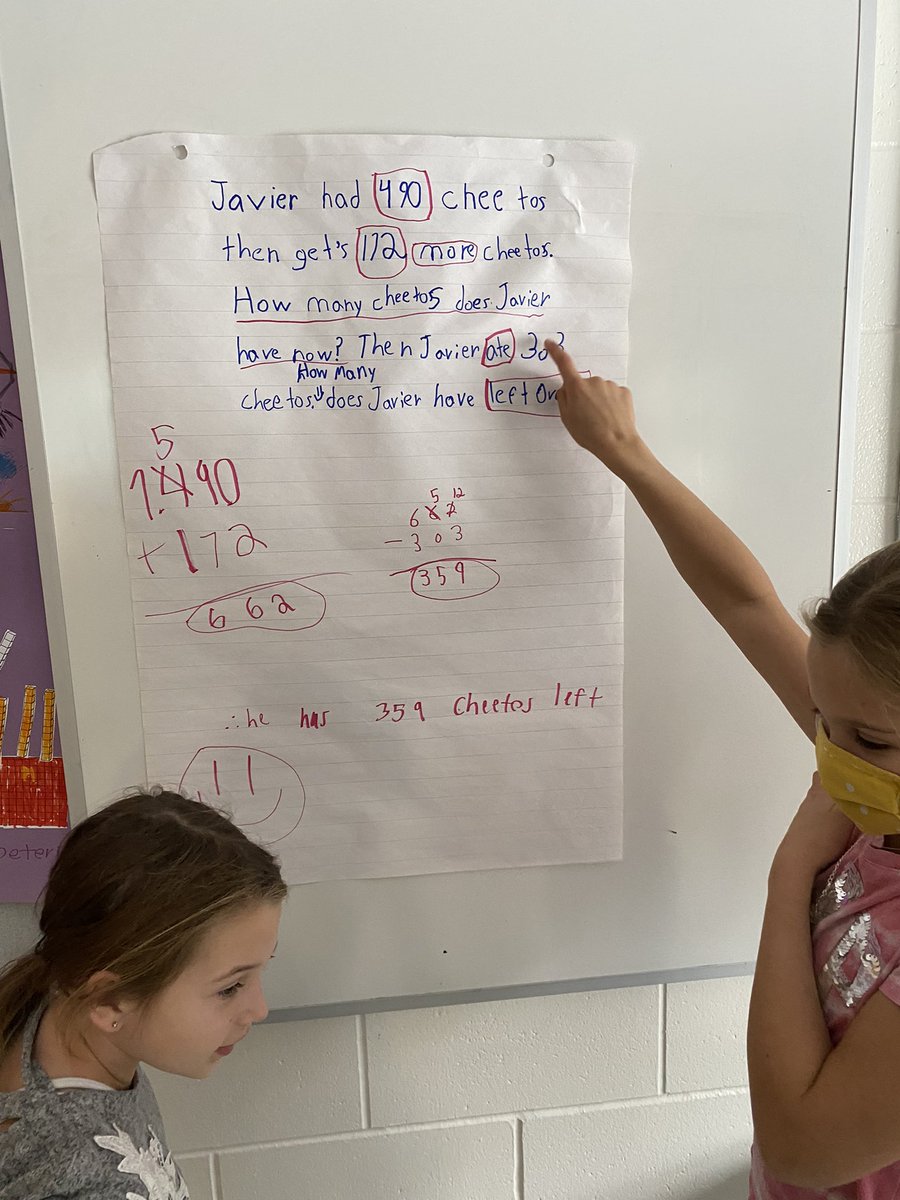 Javier had 490 chee tos
then get's 172 more cheetos.
How many cheetos does Javier
have now? Then Javier ate 303
How Many
cheetos. does Javier have left
5
1.490
+172
662
5 12
662
- 303
359
∴he has 359 Cheetos left
peter